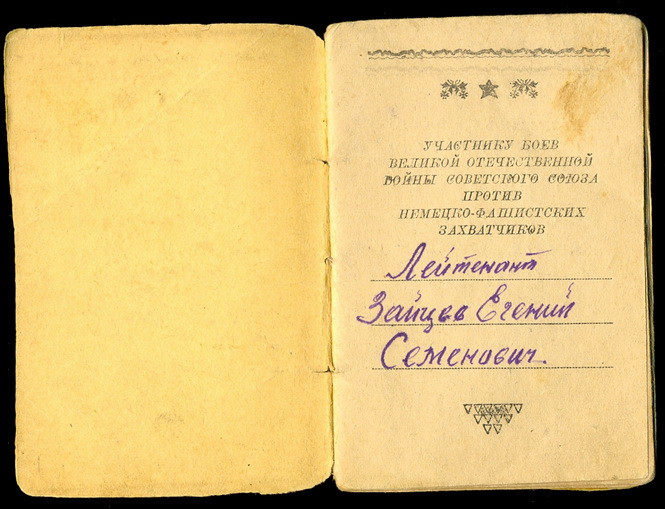 УЧАСТНИКУ БОЕВ
ВЕЛИКОЙ ОТЕЧЕСТВЕННОЙ
ВОЙНЫ СОВЕТСКОГО СОЮЗА
ПРОТИВ
НЕМЕЦКО-ФАШИСТСКИХ
ЗАХВАТЧИКОВ
Лейтенант
Зайцев Егений
Семенович